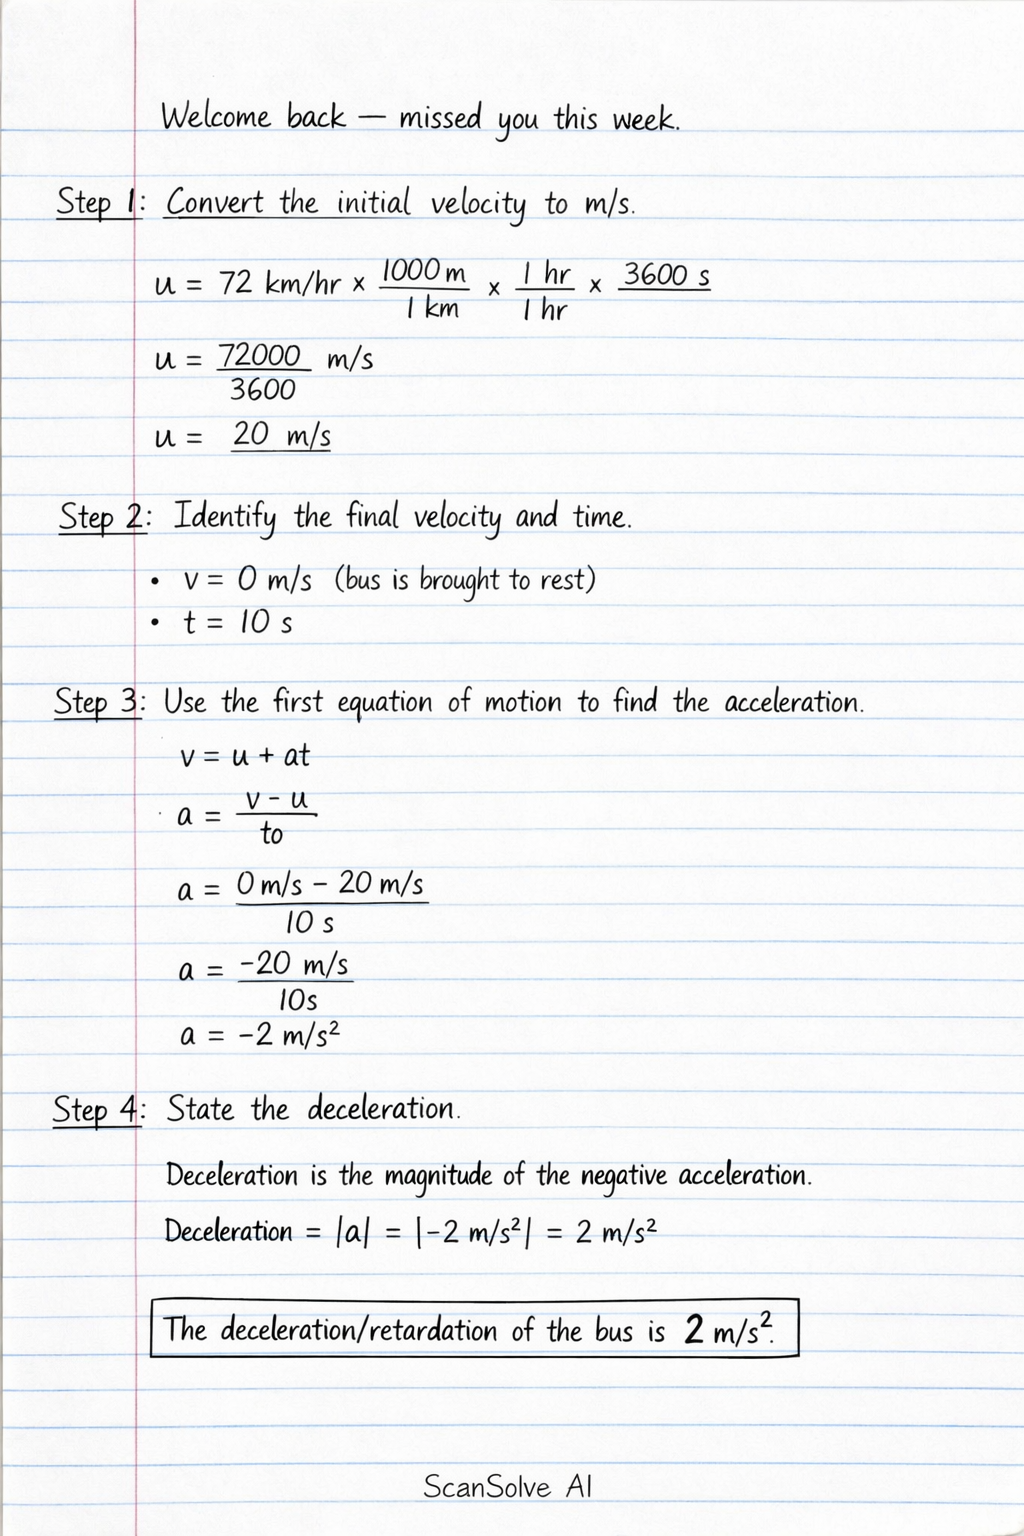 Welcome back — missed you this week.
Step 1: Convert the initial velocity to m/s.
u = 72 km/hr × 1000 m / 1 km × 1 hr / 1 hr × 3600 s
u = 72000 / 3600 m/s
u = 20 m/s
Step 2: Identify the final velocity and time.
• v = 0 m/s (bus is brought to rest)
• t = 10 s
Step 3: Use the first equation of motion to find the acceleration.
v = u + at
a = v - u / to
a = 0 m/s - 20 m/s / 10 s
a = -20 m/s / 10s
a = -2 m/s²
Step 4: State the deceleration.
Deceleration is the magnitude of the negative acceleration.
Deceleration = |a| = |-2 m/s²| = 2 m/s²
The deceleration/retardation of the bus is 2 m/s².
ScanSolve AI